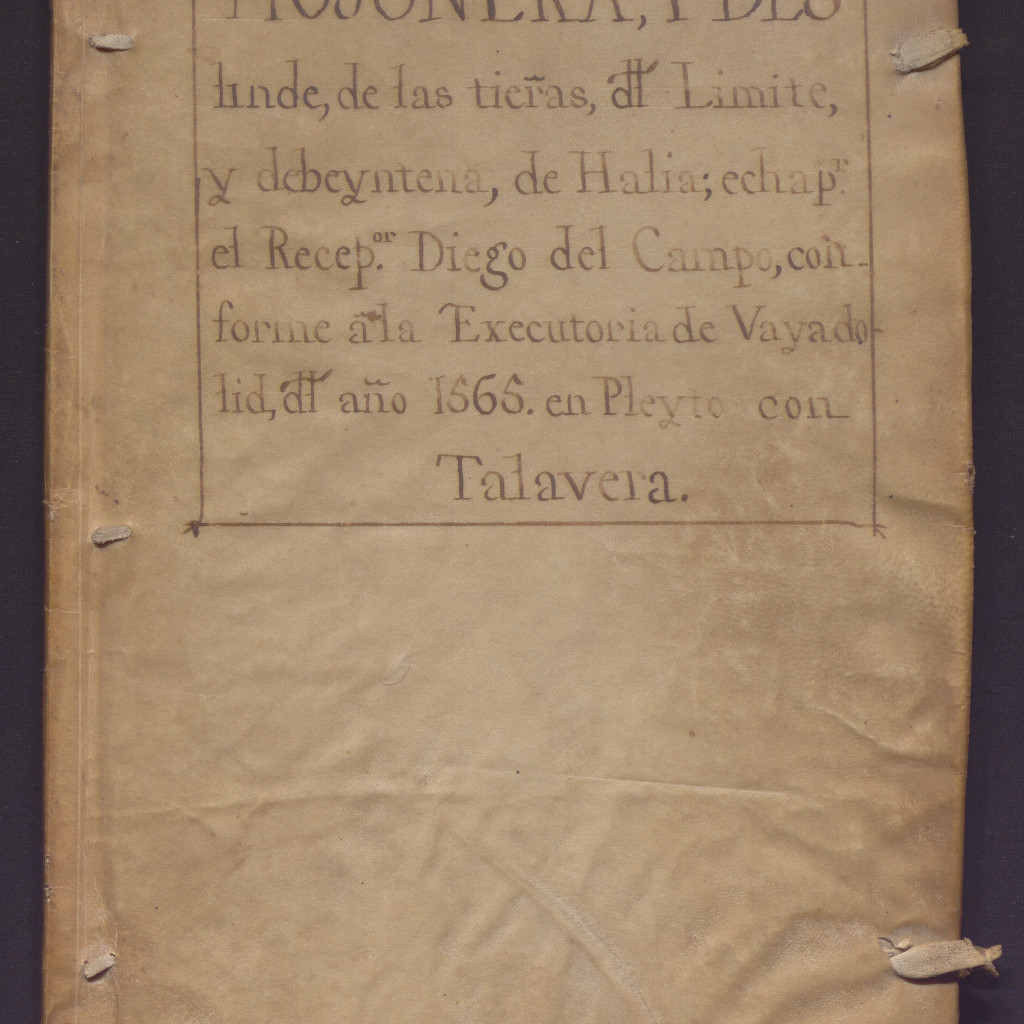 MOJONERA, Y DES
linde, de las tieras, dl Limite,
y debeyntena, de Halia; echa p.r
el Recep.or Diego del Campo, con-
forme â la Executoria de Vayado-
lid, dl año 1565. en Pleyto con
Talavera.